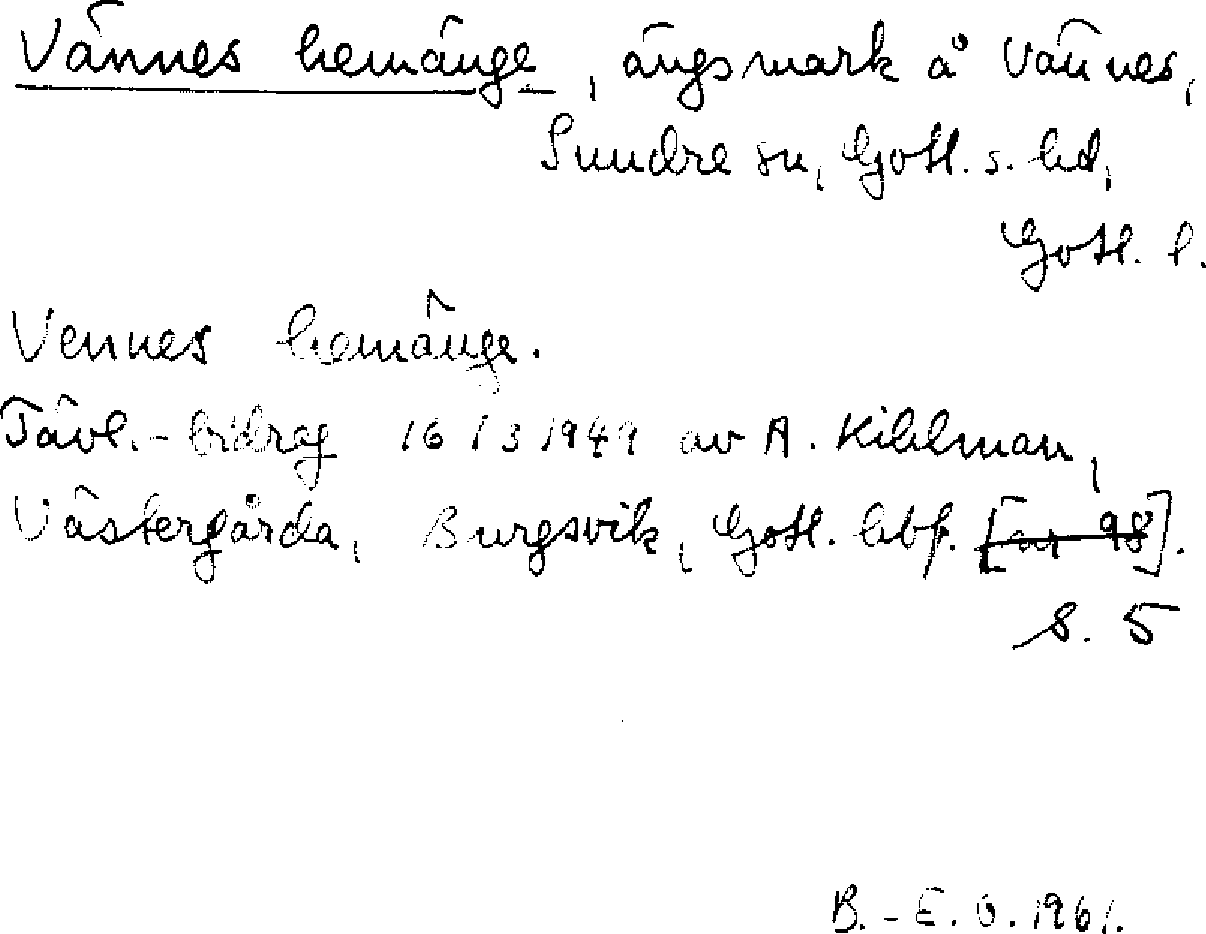 Vännes hemänge, ängsmark å Vännes,
Sundre sn, Gotl. s. hd,
Gotl. l.
Vennes hemänge.
Tävl.-bidrag 16/3 1949 av A. Kihlman,
Västergårda, Burgsvik, Gotl. hbf. [nr 98].
s. 5
B.-E. O. 1961.